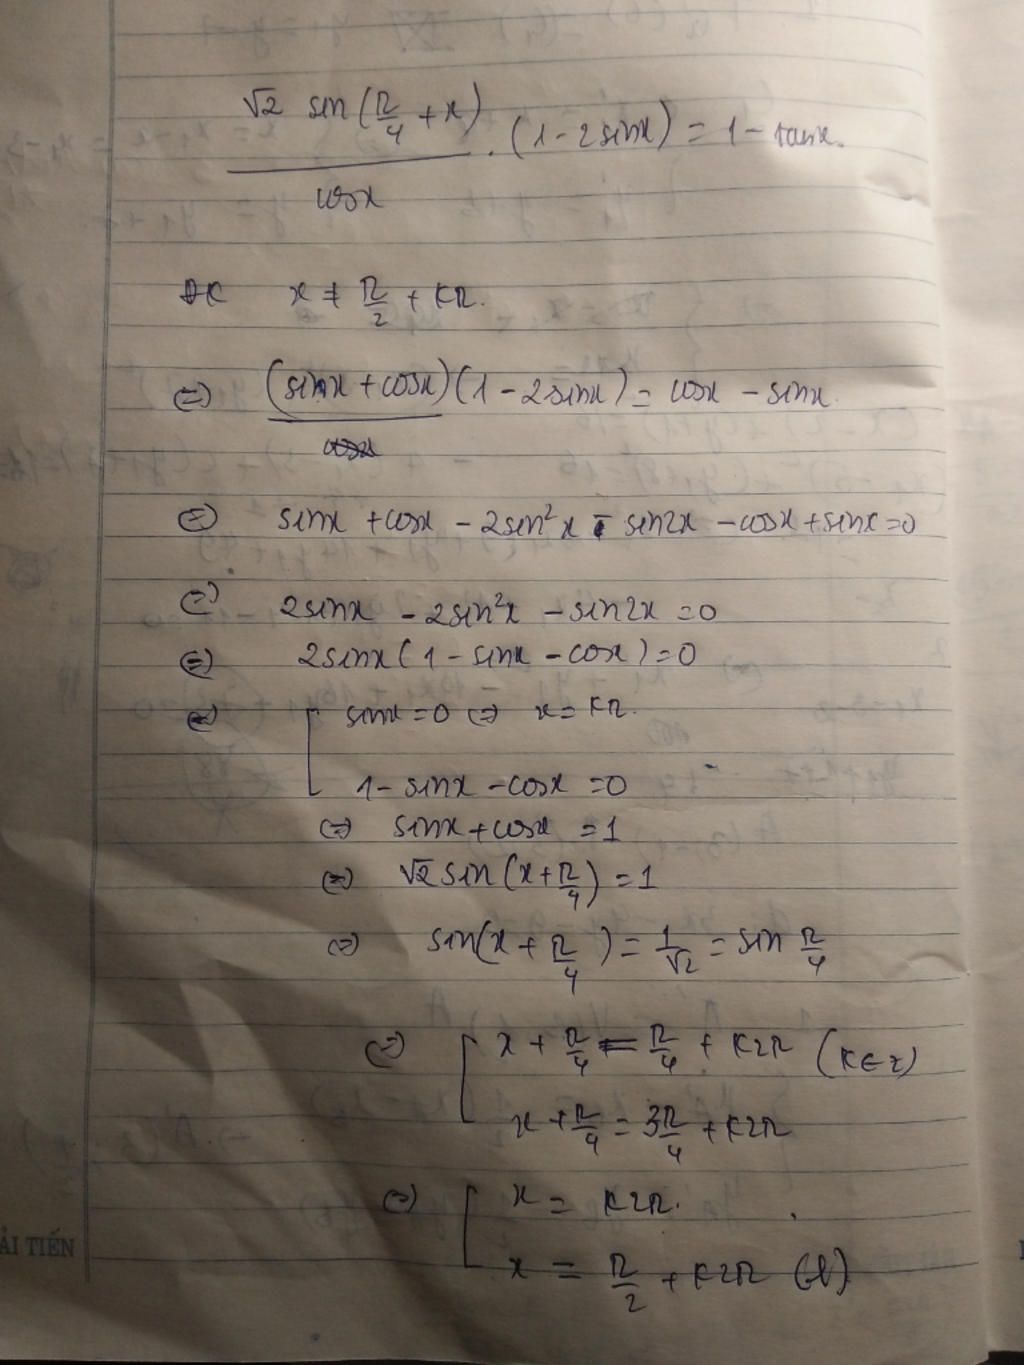 √2 sin(π/4 + x) / cosx . (1 - 2sinx) = 1 - tanx.
ĐK x ≠ π/2 + kπ.
⇔ (sinx + cosx)(1 - 2sinx) = cosx - sinx.
⇔ sinx + cosx - 2sin²x - sin2x - cosx + sinx = 0
⇔ 2sinx - 2sin²x - sin2x = 0
⇔ 2sinx(1 - sinx - cosx) = 0
⇔ [ sinx = 0 ⇔ x = kπ.
1 - sinx - cosx = 0
⇔ sinx + cosx = 1
⇔ √2 sin(x + π/4) = 1
⇔ sin(x + π/4) = 1/√2 = sin π/4
⇔ [ x + π/4 = π/4 + k2π (k∈z)
x + π/4 = 3π/4 + k2π
⇔ [ x = k2π.
x = π/2 + k2π (l)
ẢI TIẾN